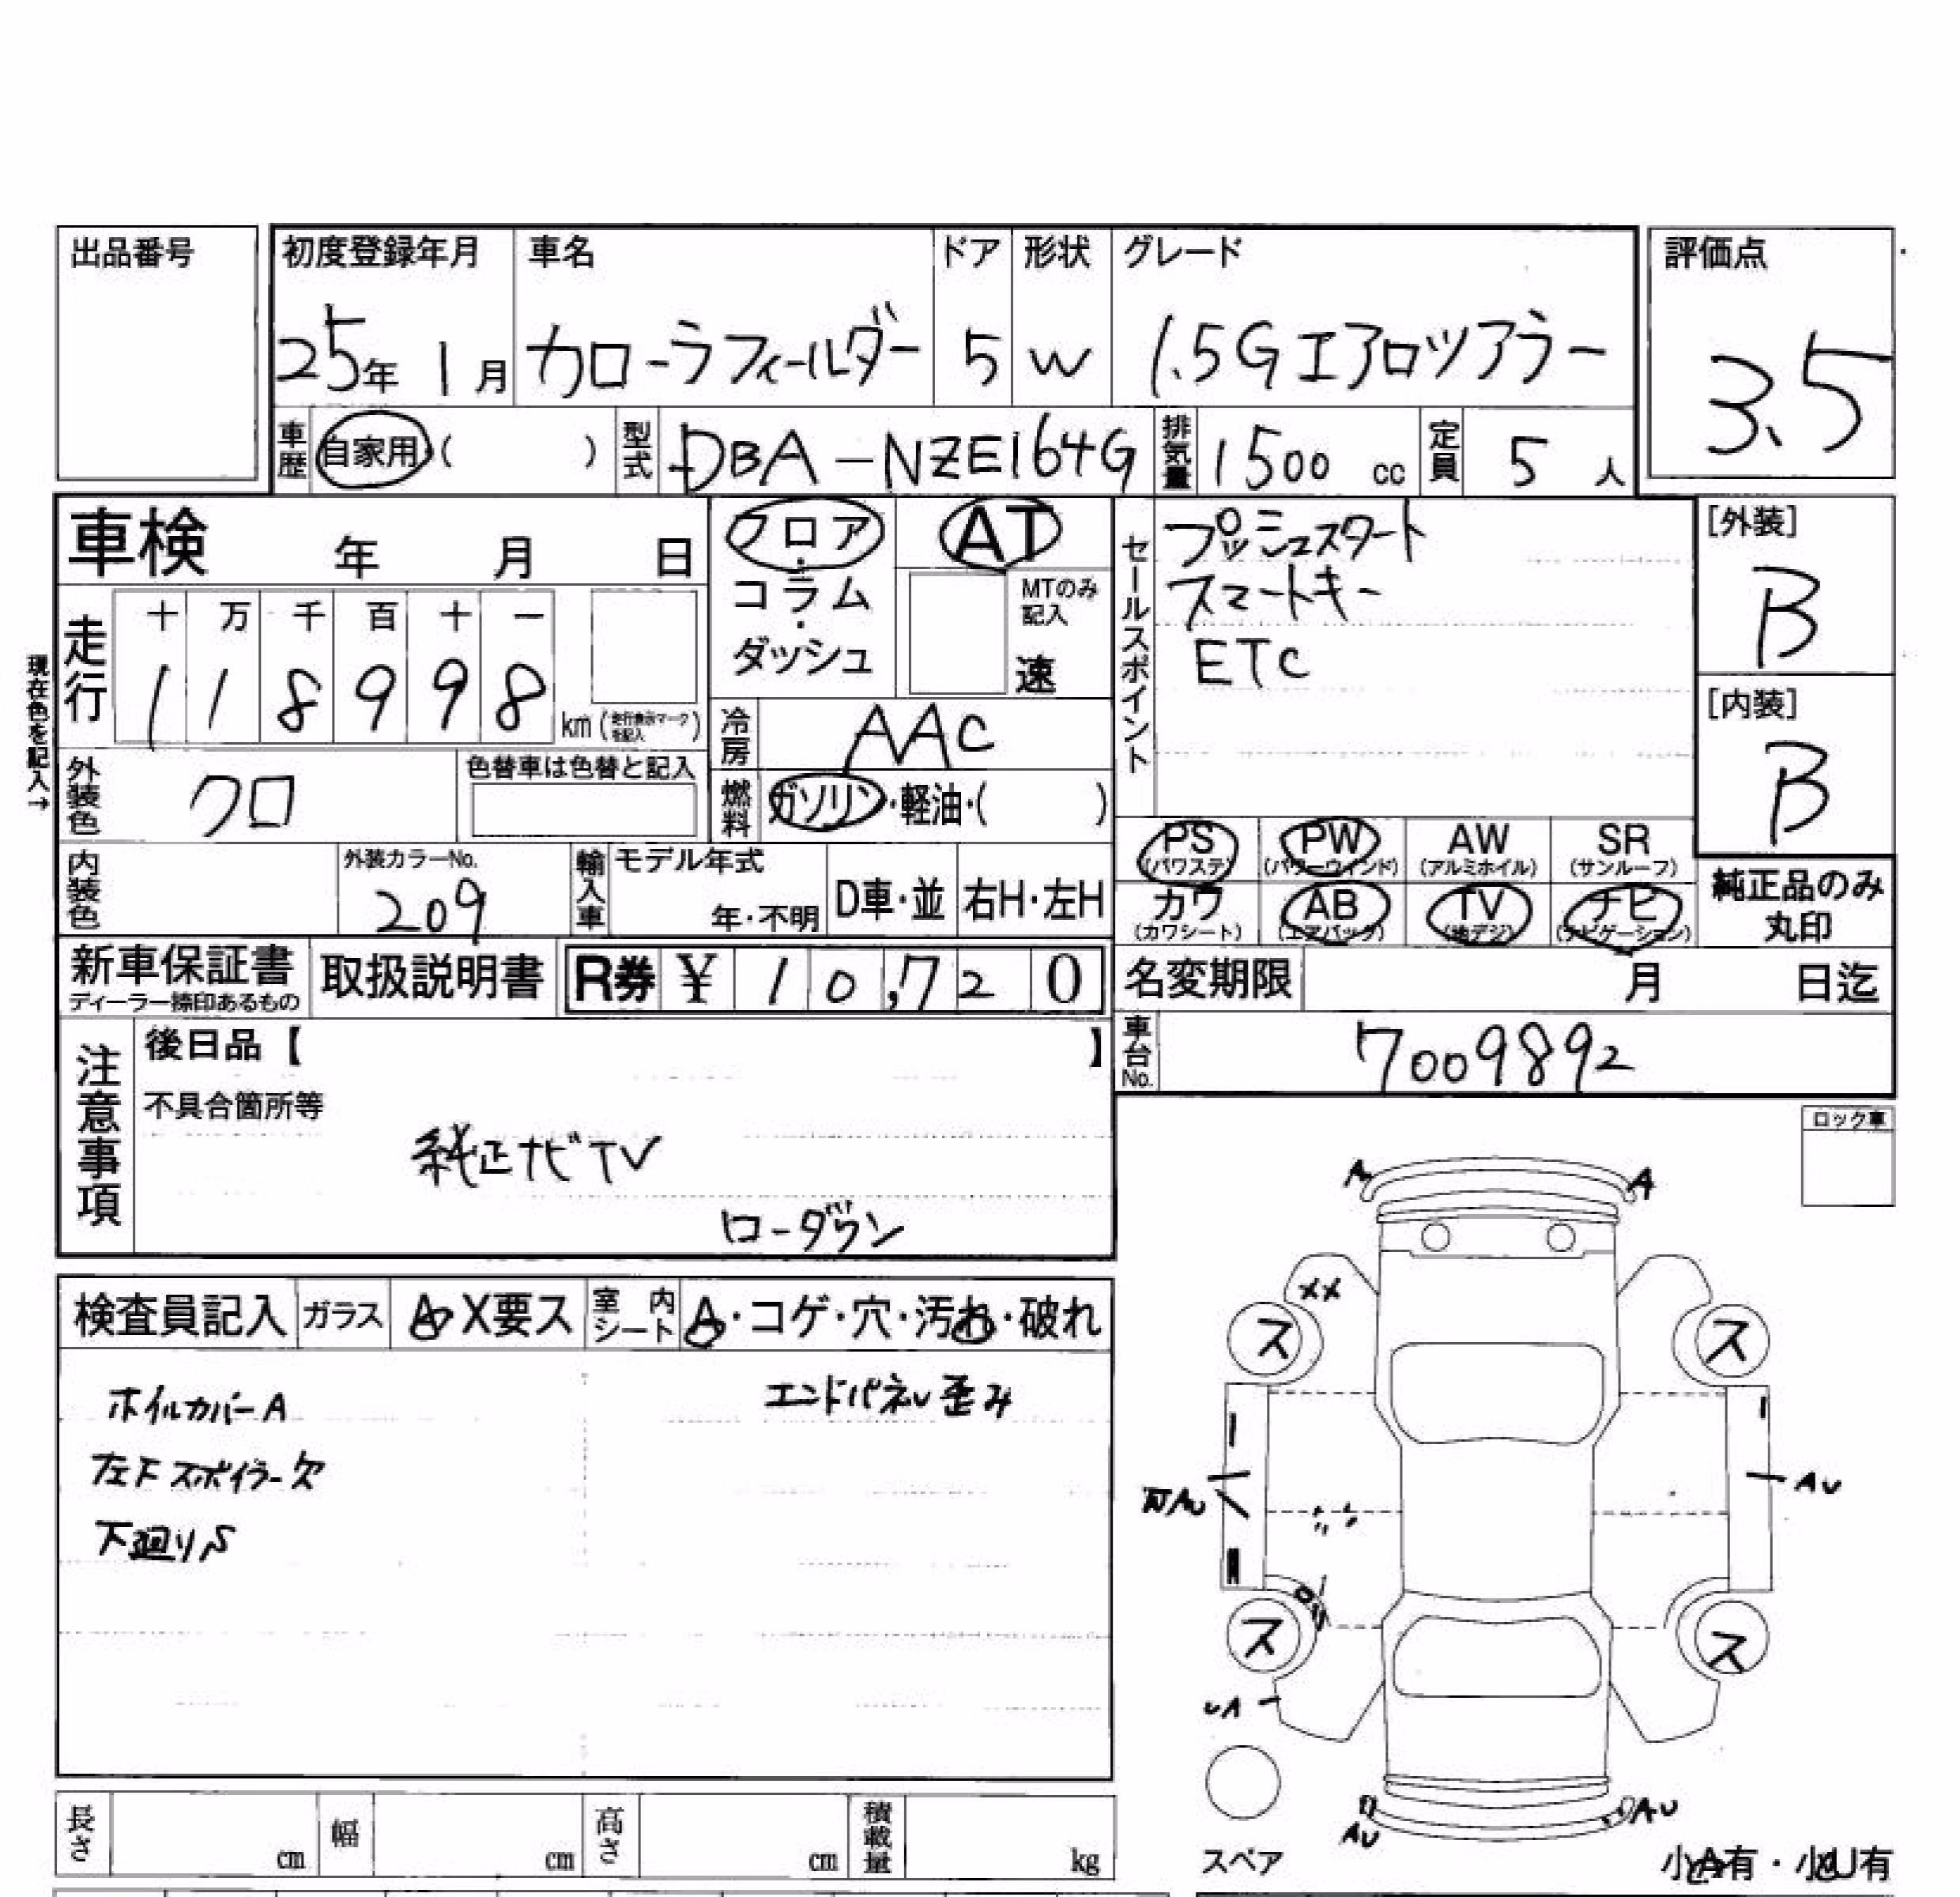 出品番号
初度登録年月 車名 ドア 形状 グレード 評価点
25年 1月 カローラフィールダー 5 W 1.5Gエアロツアラー 3.5
車歴 自家用 ( ) 型式 DBA-NZE164G 排気量 1500 cc 定員 5 人
車検 年 月 日
フロア・コラム・ダッシュ
AT
MTのみ記入
速
セールスポイント
プッシュスタート
スマートキー
ETC
[外装]
B
[内装]
B
現在色を記入→
走行 十 万 千 百 十 一
1 1 8 9 9 8 km (走行表示マークを記入)
冷房 AAC
外装色 クロ 色替車は色替と記入
燃料 ガソリン・軽油・( )
内装色
外装カラーNo.
209
輸入車 モデル年式
年・不明 D車・並 右H・左H
PS (パワステ) PW (パワーウインド) AW (アルミホイル) SR (サンルーフ)
カワ (カワシート) AB (エアバック) TV (地デジ) ナビ (ナビゲーション)
純正品のみ
丸印
新車保証書
ディーラー捺印あるもの
取扱説明書 R券 ¥ 10,720
名変期限 月 日迄
車台No. 7009892
注意事項
後日品【 】
不具合箇所等
純正ナビTV
ローダウン
ロック車
検査員記入 ガラス A・X要ス 室内シート A・コゲ・穴・汚れ・破れ
ホイルカバーA
エンドパネル歪み
左Fスポイラー欠
下廻りS
A A
XX
ス ス
AU
ス ス
UA
AU AU
スペア
小A有・小U有
長さ cm 幅 cm 高さ cm 積載量 kg